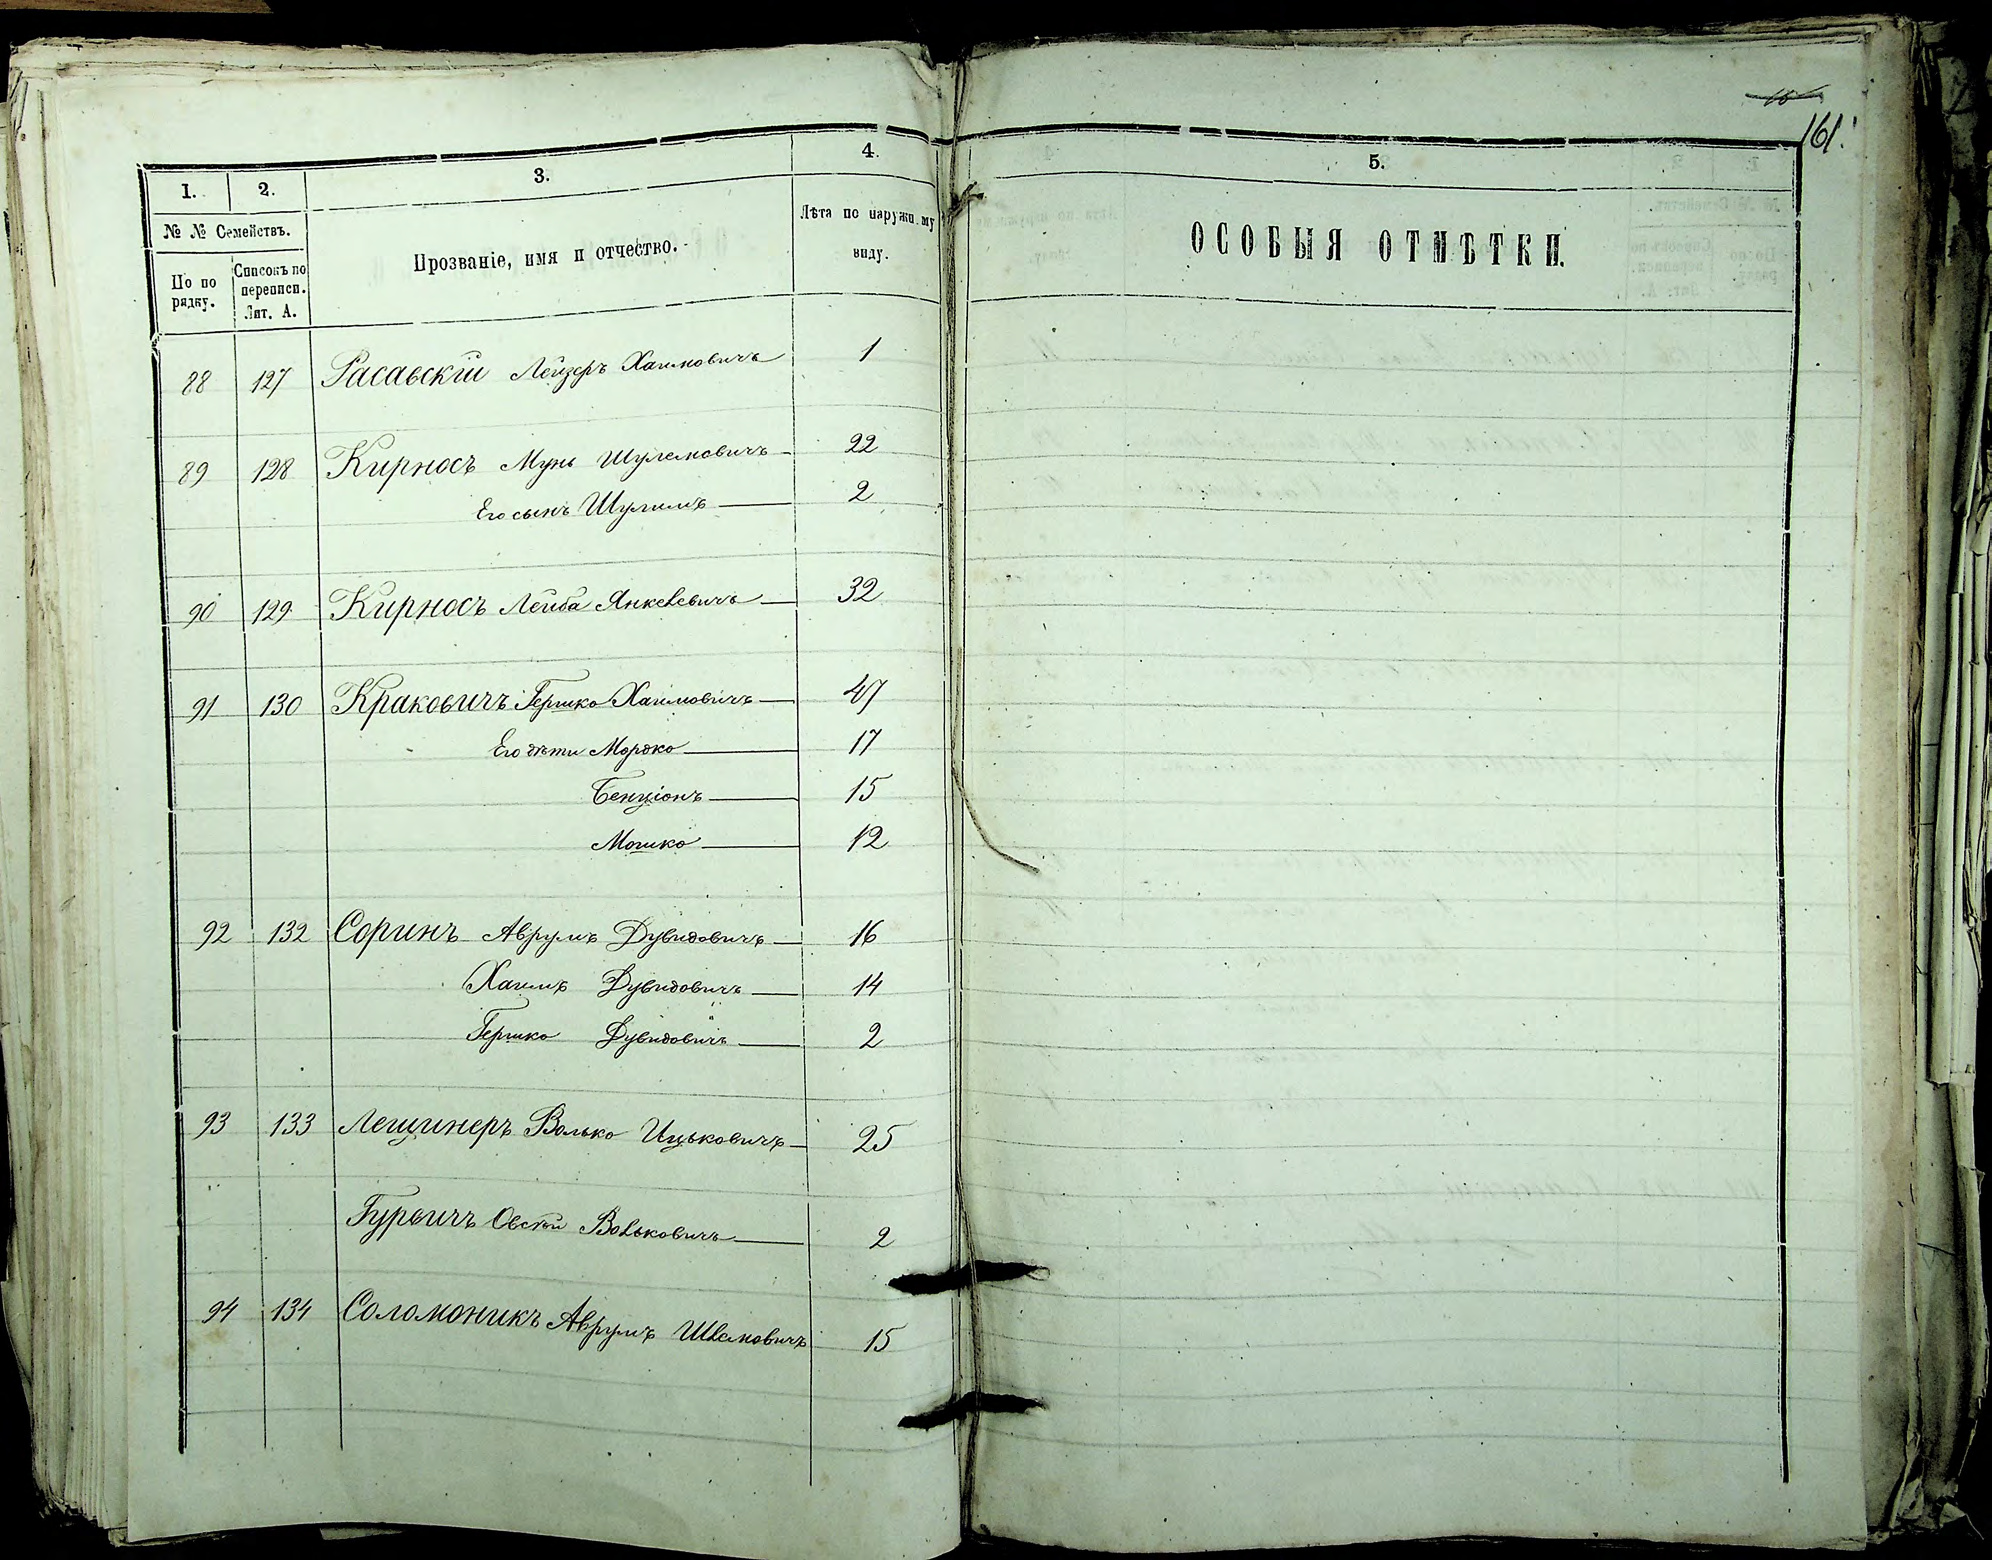 161.
1. 2. 3. 4. 5.
№ № Семействъ.
По по рядку.
Списокъ по переписи. Лит. А.
Прозваніе, имя и отчество.
Лѣта по наружному виду.
ОСОБЫЯ ОТМѢТКИ.
88 127 Расавскій Лейзеръ Хаимовичъ 1
89 128 Кирносъ Мунь Шулемовичъ 22
Его сынъ Шулимъ 2
90 129 Кирносъ Лейба Янкелевичъ 32
91 130 Краковичъ Гершко Хаимовичъ 47
Его дѣти Мордко 17
Бенціонъ 15
Мошко 12
92 132 Соринъ Аврумъ Дувидовичъ 16
Хаимъ Дувидовичъ 14
Гершко Дувидовичъ 2
93 133 Лещинеръ Волько Ицьковичъ 25
Гурвичъ Овсѣй Вольковичъ 2
94 134 Соломоникъ Аврумъ 15